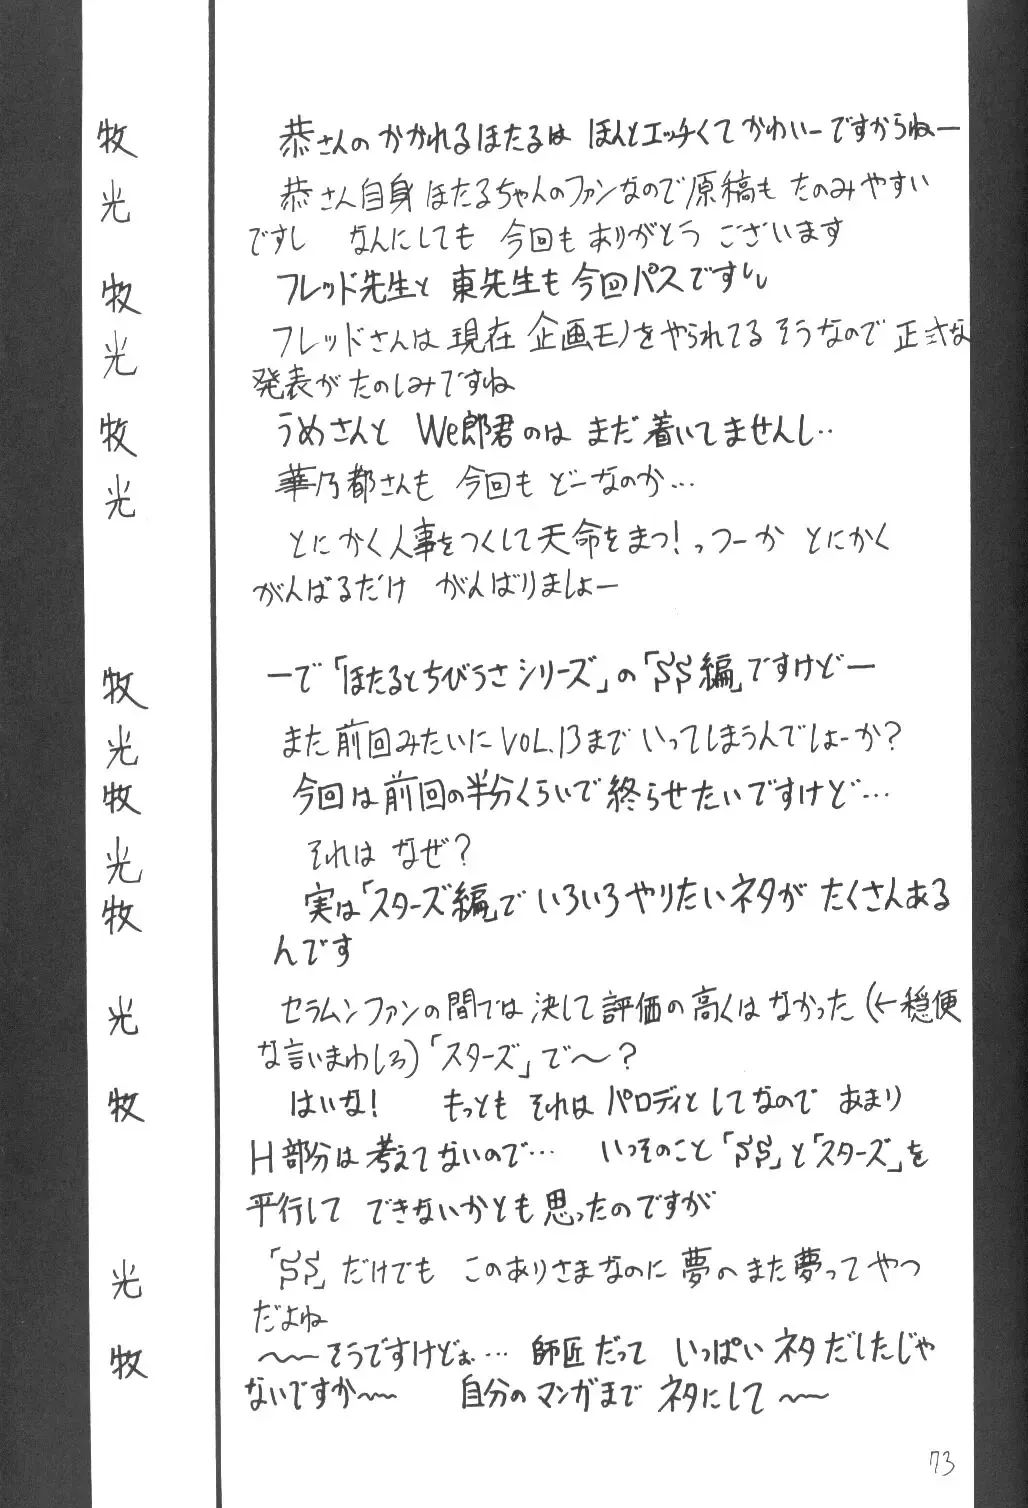 牧 恭さんのかかれるほたるは ほんとエッチくて かわいーですからねー
光 恭さん自身 ほたるちゃんのファンなので 原稿も たのみやすい
ですし なんにしても 今回も ありがとう ございます
牧 フレッド先生と 東先生も 今回パスですし
光 フレッドさんは 現在 企画モノをやられてる そうなので 正式な
発表が たのしみですね
牧 うめさんと We郎君のは まだ 着いてませんし‥
光 華乃都さんも 今回も どーなのか…
とにかく人事をつくして天命をまつ!っつーか とにかく
がんばるだけ がんばりましょー
牧 ーで「ほたるとちびうさシリーズ」の「SS編」ですけどー
光 また 前回みたいに VOL.13まで いってしまうんでしょーか?
牧 今回は 前回の半分くらいで 終らせたいですけど…
光 それは なぜ?
牧 実は「スターズ編」で いろいろやりたいネタが たくさんある
んです
光 セラムンファンの間では 決して 評価の高くは なかった(←穏便
な言いまわしろ)「スターズ」で〜?
牧 はいな! もっとも それは パロディとしてなので あまり
H部分は 考えてないので… いっそのこと「SS」と「スターズ」を
平行して できないかとも 思ったのですが
光 「SS」だけでも このありさまなのに 夢のまた夢ってやつ
だよね
牧 〜そうですけどぉ… 師匠だって いっぱい ネタだしたじゃ
ないですか〜 自分の マンガまで ネタにして〜
73